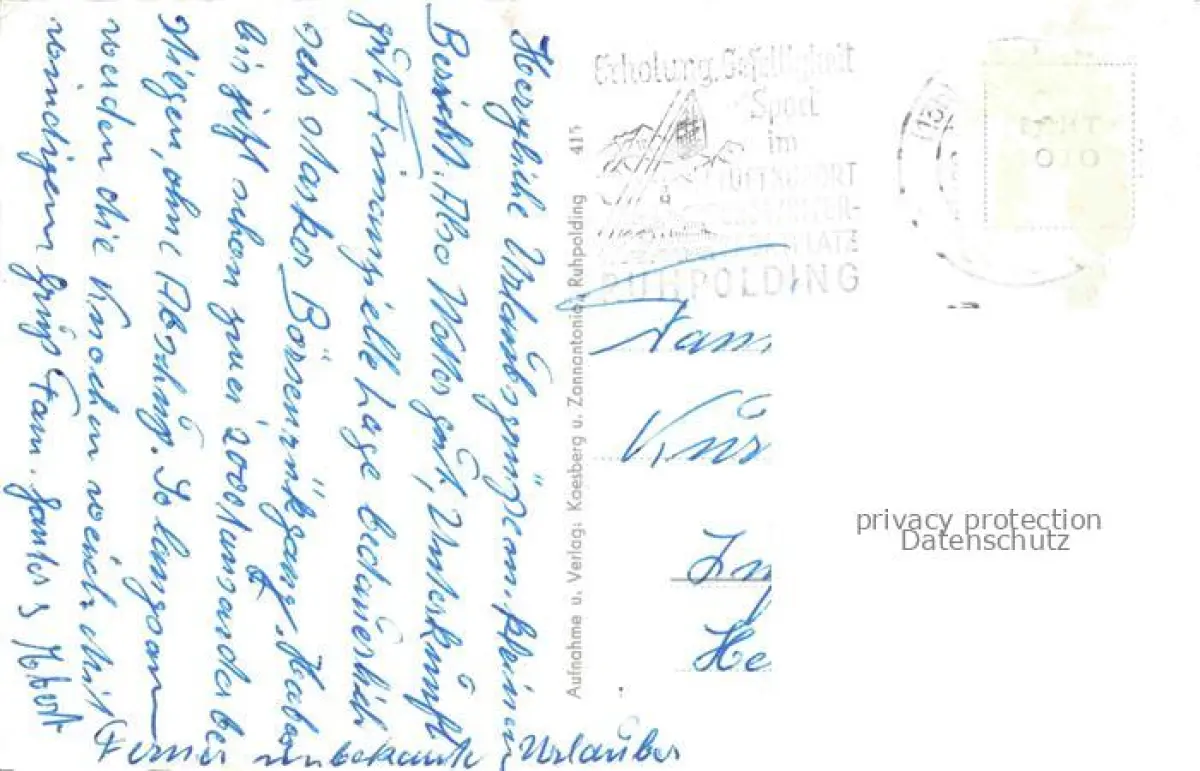 Herzliche Urlaubsgrüße m. kleinem
Bericht. Also Wetter gut, Unterkunft
gut, Finanzielle Lage bedauerlich
sehr starker Börsenrückgang. Haben
bis jetzt schon zwei 2000 Hunder bes
stiegen, ohne Abstieg. So langsam
werden die Knochen weich. Mit
windigem Gruß Fam.
Ferner unbekannte Urlauber
Aufnahme u. Verlag: Koesberg u. Zannantonio, Ruhpolding 415
Erholung, Geselligkeit
Sport
im
LUFTKURORT
PLATZ
RUHPOLDING
Fam.
Kins
In
He
privacy protection
Datenschutz